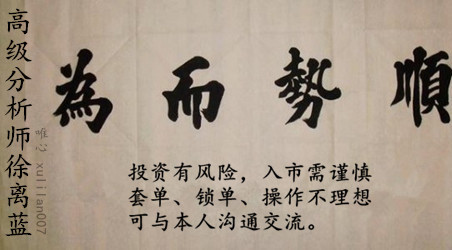 高级分析师徐离蓝
順勢而為
投资有风险，入市需谨慎
套单、锁单、操作不理想
可与本人沟通交流。
xulilan007